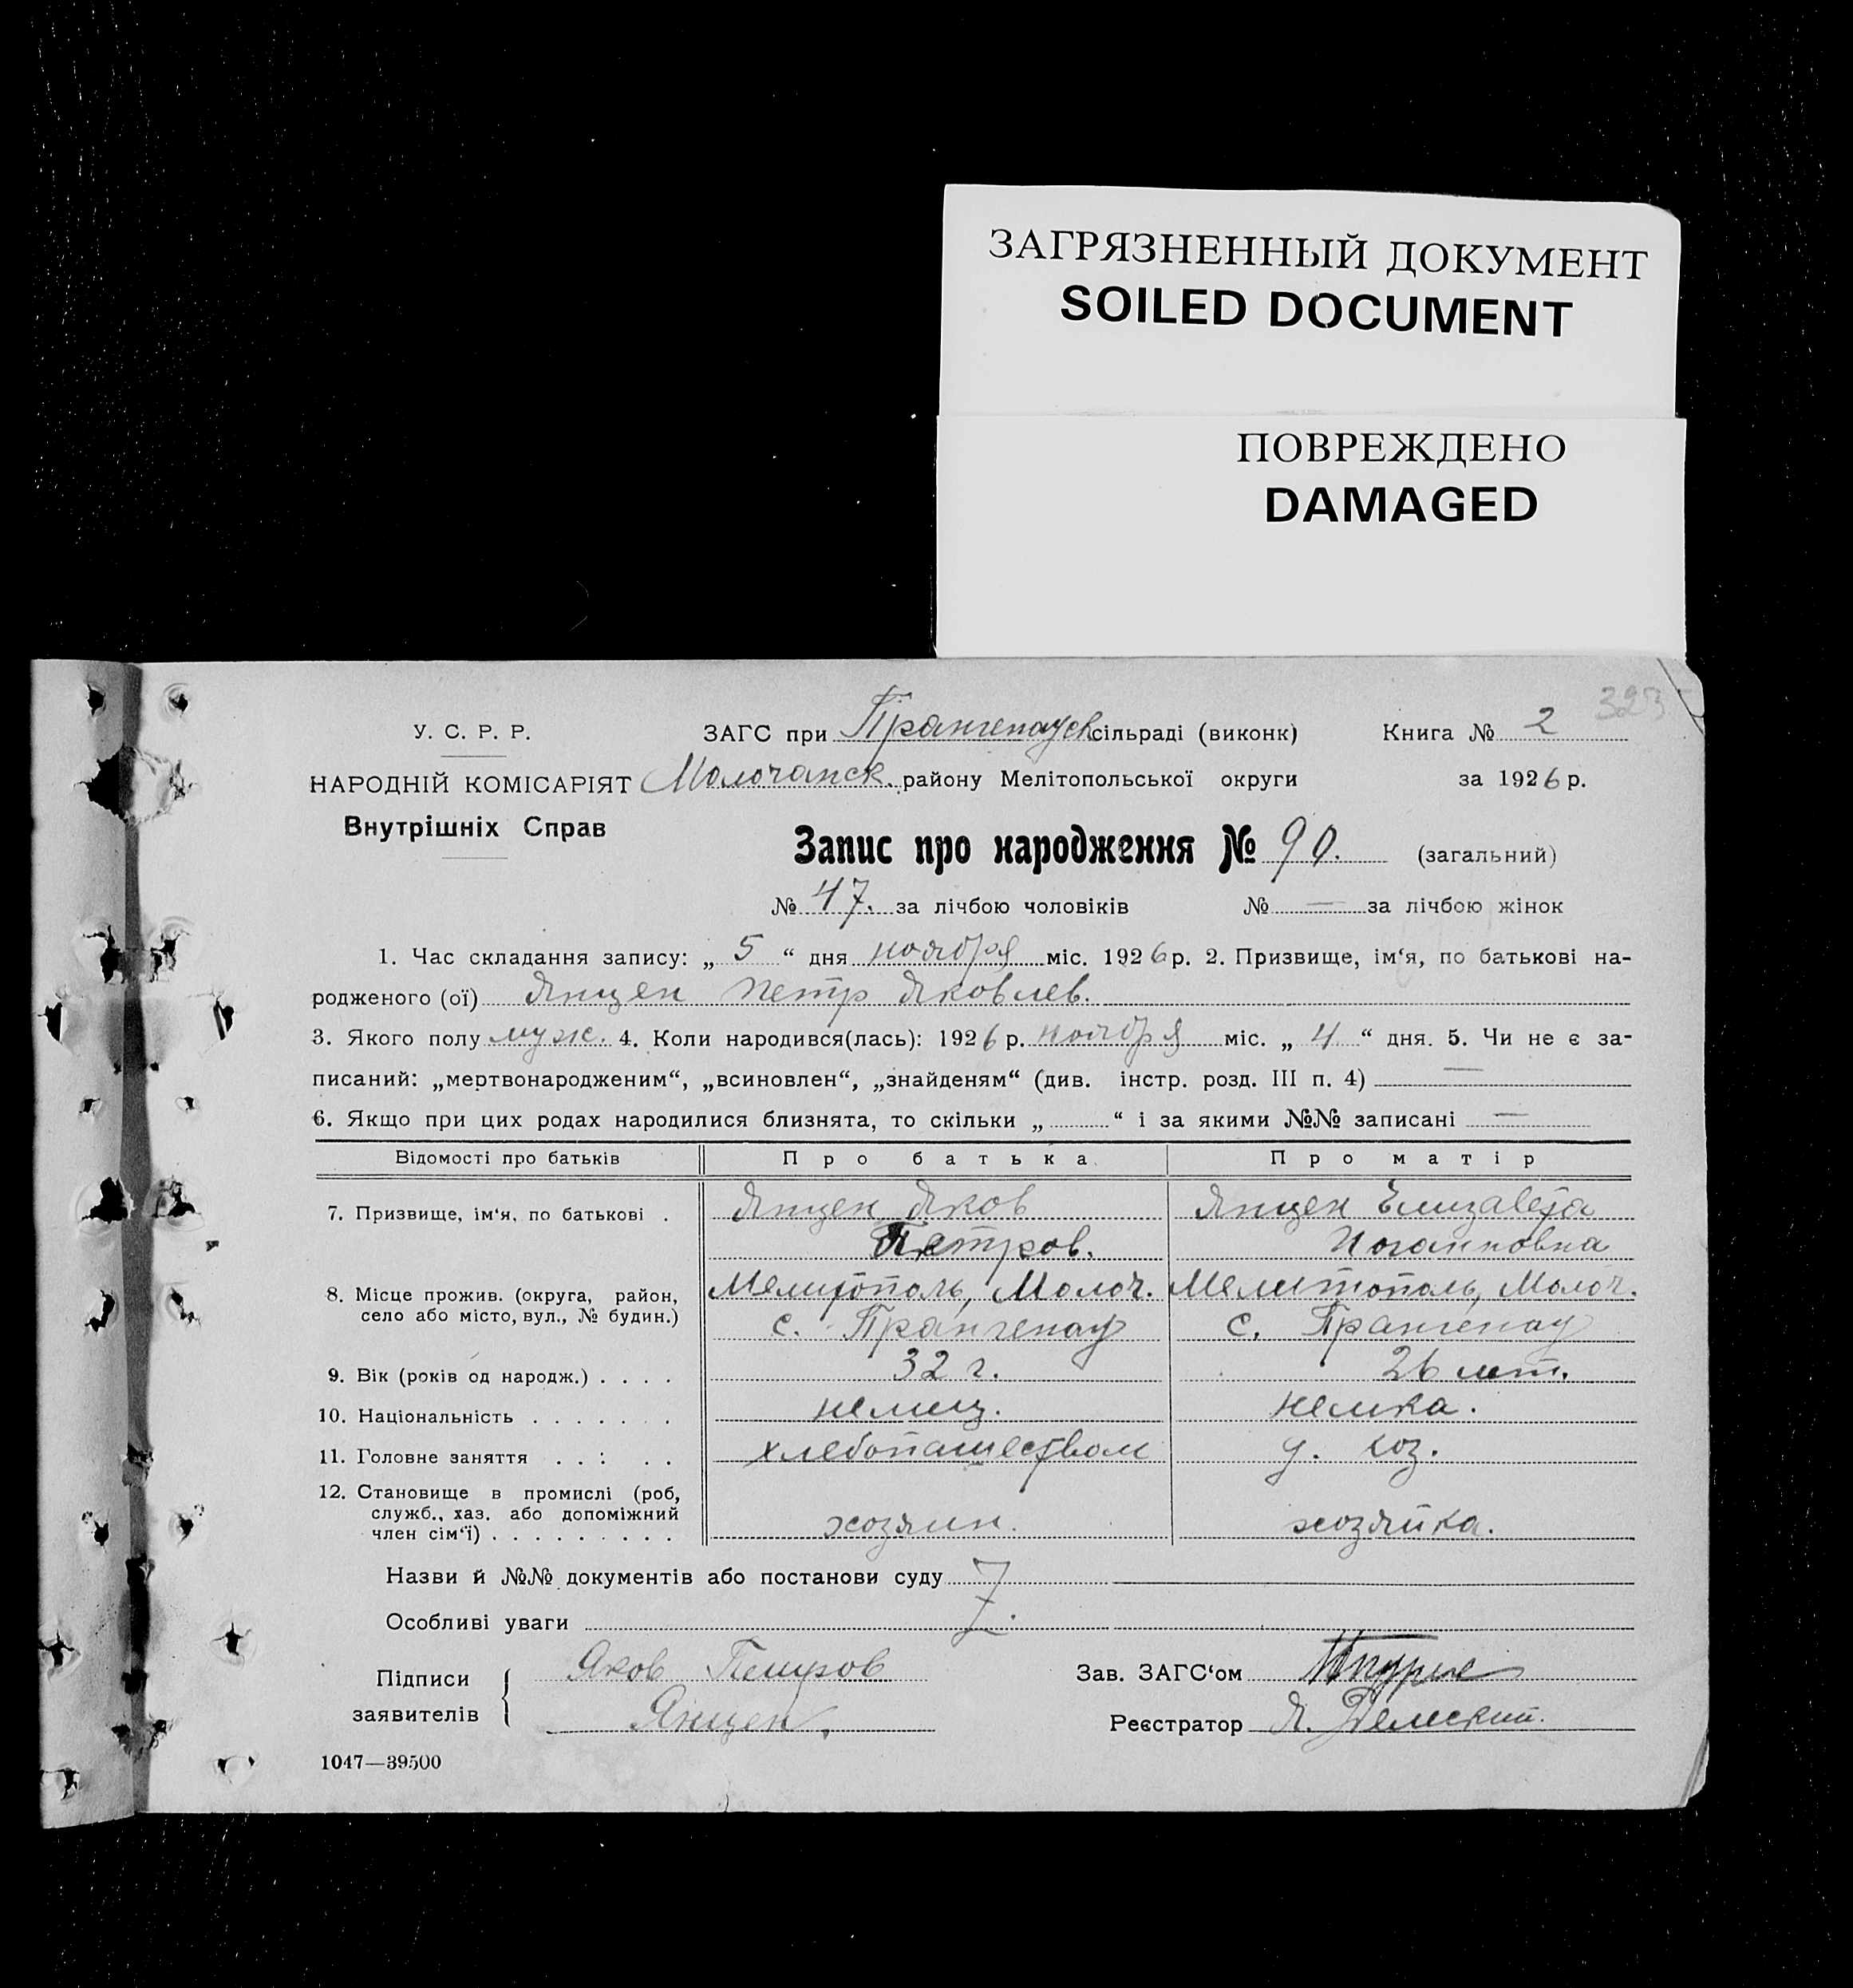 ЗАГРЯЗНЕННЫЙ ДОКУМЕНТ
SOILED DOCUMENT
ПОВРЕЖДЕНО
DAMAGED
323
У. С. Р. Р.
НАРОДНІЙ КОМІСАРІЯТ
Внутрішніх Справ
ЗАГС при Прангенауск сільраді (виконк)
Молочанск. району Мелітопольської округи
Книга № 2
за 1926 р.
Запис про народження № 90. (загальний)
№ 47. за лічбою чоловіків № — за лічбою жінок
1. Час складання запису: „ 5 “ дня ноября міс. 1926 р. 2. Призвище, ім‘я, по батькові на-
родженого (ої) Янцен Петр Яковлев.
3. Якого полу муж. 4. Коли народився(лась): 1926 р. ноября міс. „ 4 “ дня. 5. Чи не є за-
писаний: „мертвонародженим“, „всиновлен“, „знайденям“ (див. інстр. розд. III п. 4) —
6. Якщо при цих родах народилися близнята, то скільки „ “ і за якими №№ записані —
Відомості про батьків Про батька Про матір
7. Призвище, ім‘я, по батькові . Янцен Яков Янцен Елизавета
Петров. Иоганновна
8. Місце прожив. (округа, район, Мелитополь, Молоч. Мелитополь, Молоч.
село або місто, вул., № будин.) с. Прангенау с. Прангенау
9. Вік (років од народж.) . . . . 32 г. 26 лет.
10. Національність . . . . . . . немец. немка.
11. Головне заняття . . : . . хлебопашеством д. хоз.
12. Становище в промислі (роб,
служб., хаз. або допоміжний
член сім‘ї) . . . . . . . . . хозяин. хозяйка.
Назви й №№ документів або постанови суду
Особливі уваги
Підписи
заявителів
Яков Петров
Янцен.
Зав. ЗАГС‘ом
Реєстратор Я.
1047—39500